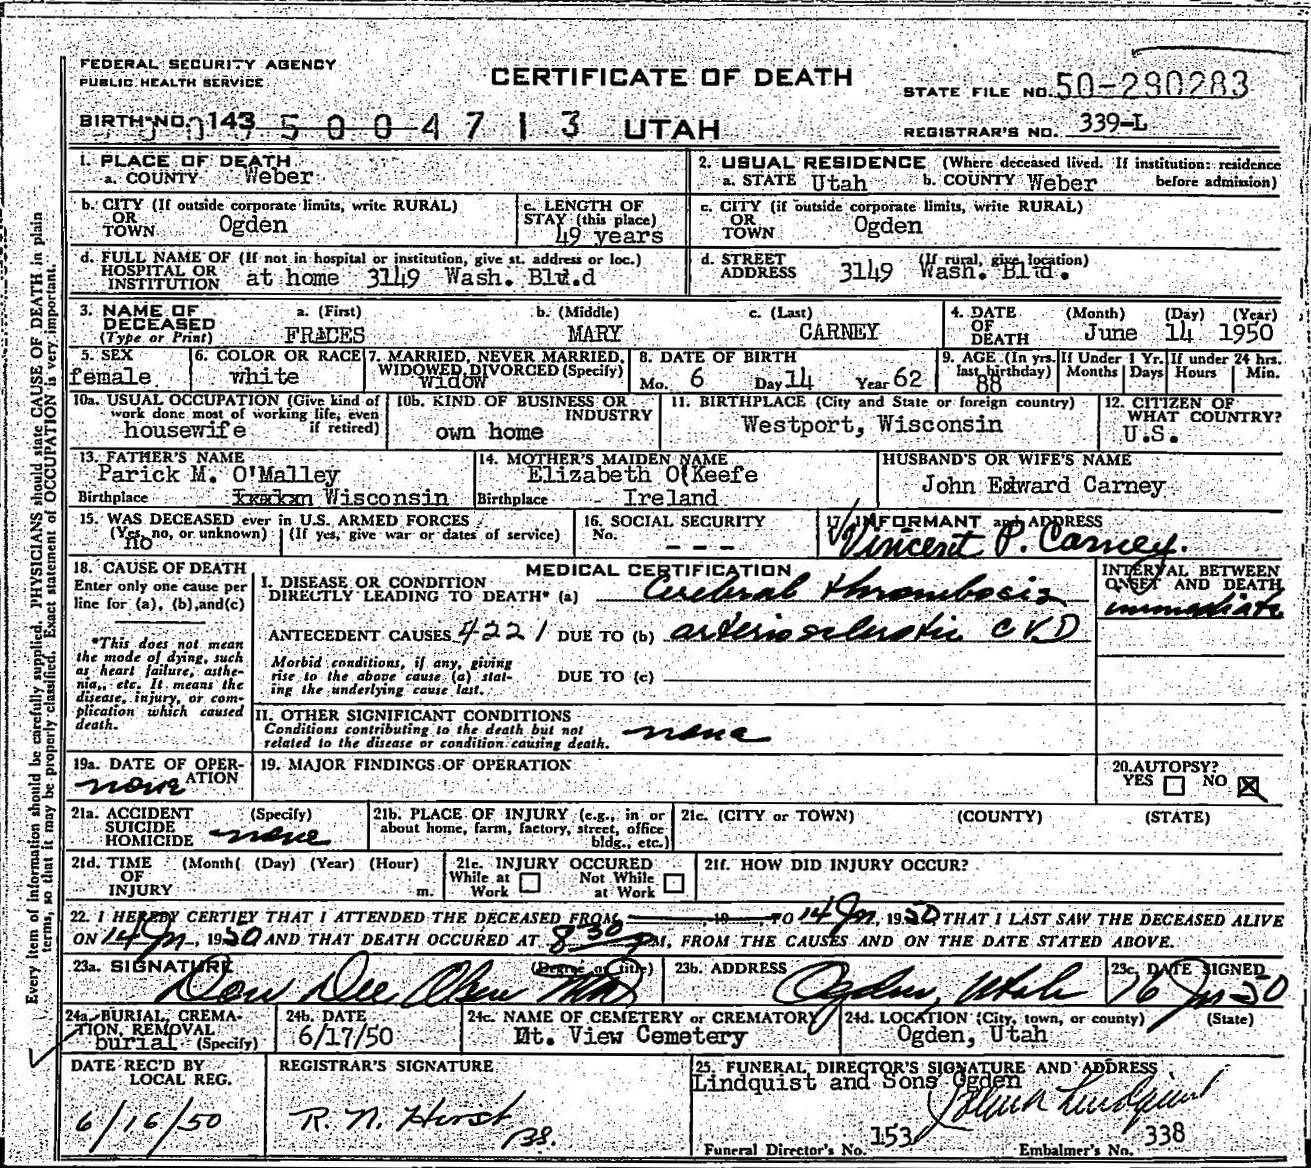 FEDERAL SECURITY AGENCY
PUBLIC HEALTH SERVICE
CERTIFICATE OF DEATH
STATE FILE NO. 50-290283
BIRTH NO. 143
5 0 0 4 7 1 3
UTAH
REGISTRAR'S NO. 339-L
1. PLACE OF DEATH
a. COUNTY Weber
2. USUAL RESIDENCE (Where deceased lived. If institution: residence before admission)
a. STATE Utah b. COUNTY Weber
b. CITY (If outside corporate limits, write RURAL)
OR TOWN Ogden
c. LENGTH OF STAY (this place)
49 years
c. CITY (if outside corporate limits, write RURAL)
OR TOWN Ogden
d. FULL NAME OF (If not in hospital or institution, give st. address or loc.)
HOSPITAL OR INSTITUTION at home 3149 Wash. Blv.d
d. STREET ADDRESS (If rural, give location)
3149 Wash. Blvd.
3. NAME OF DECEASED (Type or Print)
a. (First) FRACES
b. (Middle) MARY
c. (Last) CARNEY
4. DATE OF DEATH (Month) (Day) (Year)
June 14 1950
5. SEX
female
6. COLOR OR RACE
white
7. MARRIED, NEVER MARRIED, WIDOWED, DIVORCED (Specify)
widow
8. DATE OF BIRTH
Mo. 6 Day 14 Year 62
9. AGE (In yrs. last birthday)
88
If Under 1 Yr. Months Days
If under 24 hrs. Hours Min.
10a. USUAL OCCUPATION (Give kind of work done most of working life, even if retired)
housewife
10b. KIND OF BUSINESS OR INDUSTRY
own home
11. BIRTHPLACE (City and State or foreign country)
Westport, Wisconsin
12. CITIZEN OF WHAT COUNTRY?
U.S.
13. FATHER'S NAME
Parick M. O'Malley
Birthplace Wisconsin
14. MOTHER'S MAIDEN NAME
Elizabeth O'Keefe
Birthplace Ireland
HUSBAND'S OR WIFE'S NAME
John Edward Carney
15. WAS DECEASED ever in U.S. ARMED FORCES
(Yes, no, or unknown) (If yes, give war or dates of service)
no
16. SOCIAL SECURITY
No. - - -
17. INFORMANT and ADDRESS
Vincent P. Carney.
18. CAUSE OF DEATH
Enter only one cause per line for (a), (b), and (c)
*This does not mean the mode of dying, such as heart failure, asthenia, etc. It means the disease, injury, or complication which caused death.
MEDICAL CERTIFICATION
INTERVAL BETWEEN ONSET AND DEATH
I. DISEASE OR CONDITION DIRECTLY LEADING TO DEATH* (a) Cerebral thrombosis
immediate
ANTECEDENT CAUSES 4221 DUE TO (b) arteriosclerotic C V D
Morbid conditions, if any, giving rise to the above cause (a) stating the underlying cause last.
DUE TO (c)
II. OTHER SIGNIFICANT CONDITIONS
Conditions contributing to the death but not related to the disease or condition causing death.
none
19a. DATE OF OPERATION
none
19. MAJOR FINDINGS OF OPERATION
20. AUTOPSY?
YES NO
21a. ACCIDENT SUICIDE HOMICIDE (Specify)
none
21b. PLACE OF INJURY (e.g., in or about home, farm, factory, street, office bldg., etc.)
21c. (CITY or TOWN) (COUNTY) (STATE)
21d. TIME OF INJURY (Month) (Day) (Year) (Hour) m.
21e. INJURY OCCURED
While at Work Not While at Work
21f. HOW DID INJURY OCCUR?
22. I HEREBY CERTIFY THAT I ATTENDED THE DECEASED FROM 19 TO 14 Jn, 1950 THAT I LAST SAW THE DECEASED ALIVE
ON 14 Jn, 1950 AND THAT DEATH OCCURED AT 8:30 PM, FROM THE CAUSES AND ON THE DATE STATED ABOVE.
23a. SIGNATURE (Degree or title)
Don Dee Olsen MD
23b. ADDRESS
Ogden, Utah
23c. DATE SIGNED
16 Jn-50
24a. BURIAL, CREMATION, REMOVAL (Specify)
burial
24b. DATE
6/17/50
24c. NAME OF CEMETERY or CREMATORY
Mt. View Cemetery
24d. LOCATION (City, town, or county) (State)
Ogden, Utah
DATE REC'D BY LOCAL REG.
6/16/50
REGISTRAR'S SIGNATURE
R. N. Hirst
25. FUNERAL DIRECTOR'S SIGNATURE AND ADDRESS
Lindquist and Sons Ogden
Lindquist
Funeral Director's No. 153
Embalmer's No. 338
Every item of information should be carefully supplied. PHYSICIANS should state CAUSE OF DEATH in plain
terms, so that it may be properly classified. Exact statement of OCCUPATION is very important.